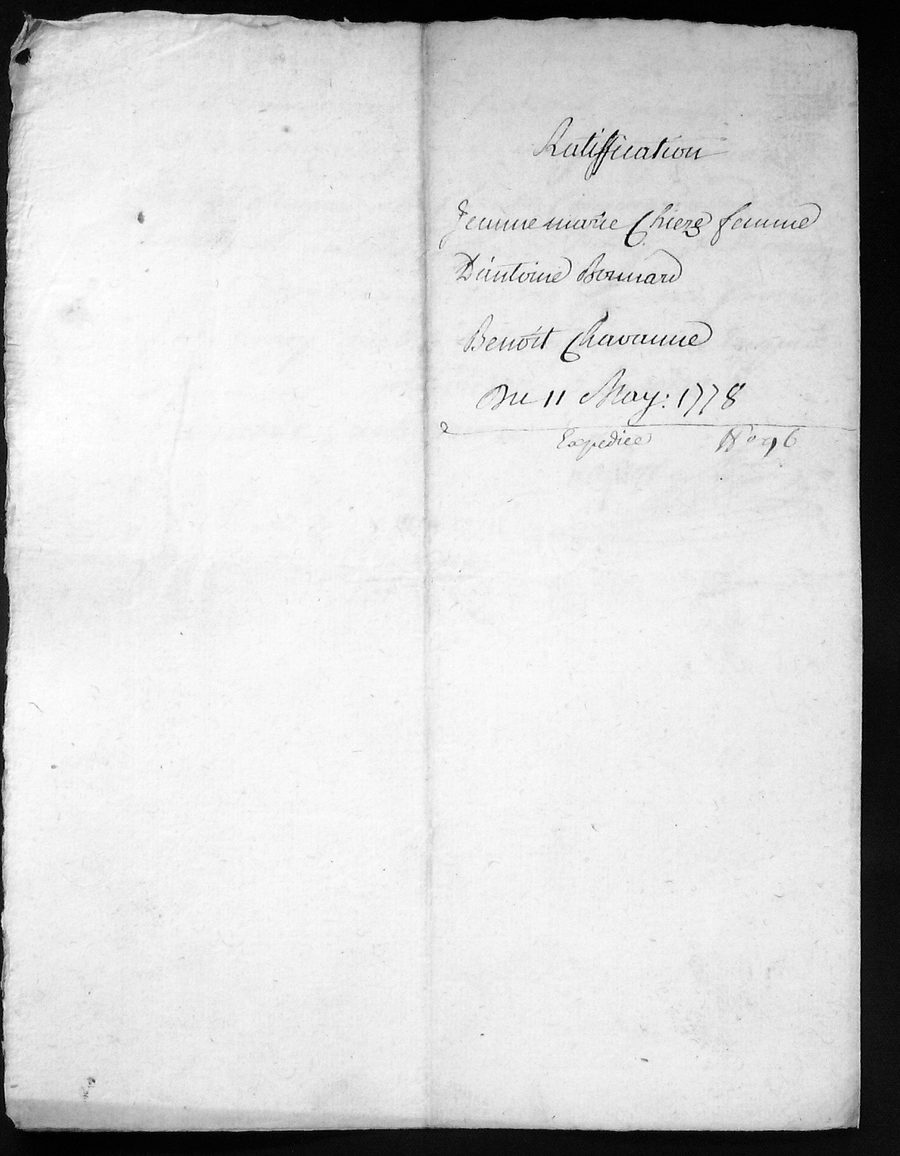 Ratiffication
Jeanne marie Chieze femme
D'antoine Bonnard
Benoit Chavanne
Du 11 May: 1778
Expediee No 96